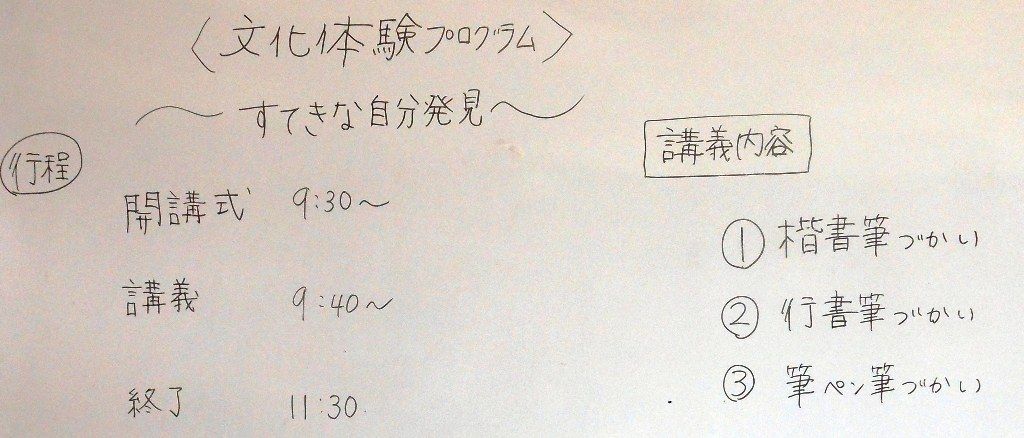 〈文化体験プログラム〉
〜すてきな自分発見〜
行程
開講式 9:30〜
講義 9:40〜
終了 11:30
講義内容
① 楷書筆づかい
② 行書筆づかい
③ 筆ペン筆づかい